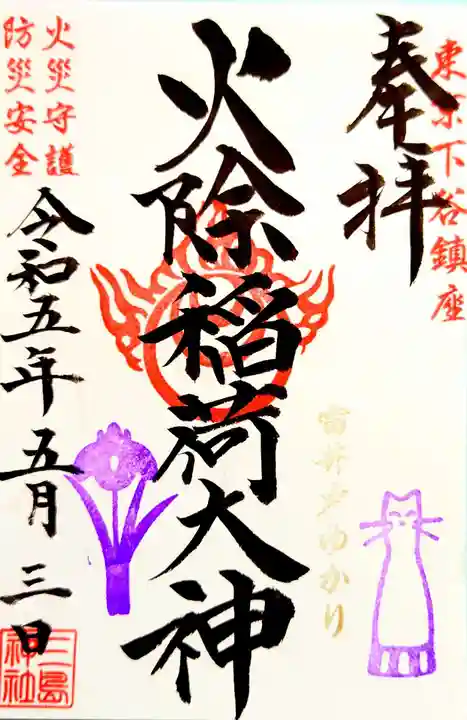 東京下谷鎮座
奉拝
火除稲荷大神
雷井戸ゆかり
火災守護
防災安全
令和五年五月三日
三島
神社